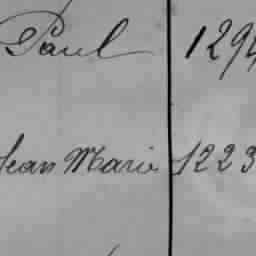 Paul 1294
Jean Marie 1223